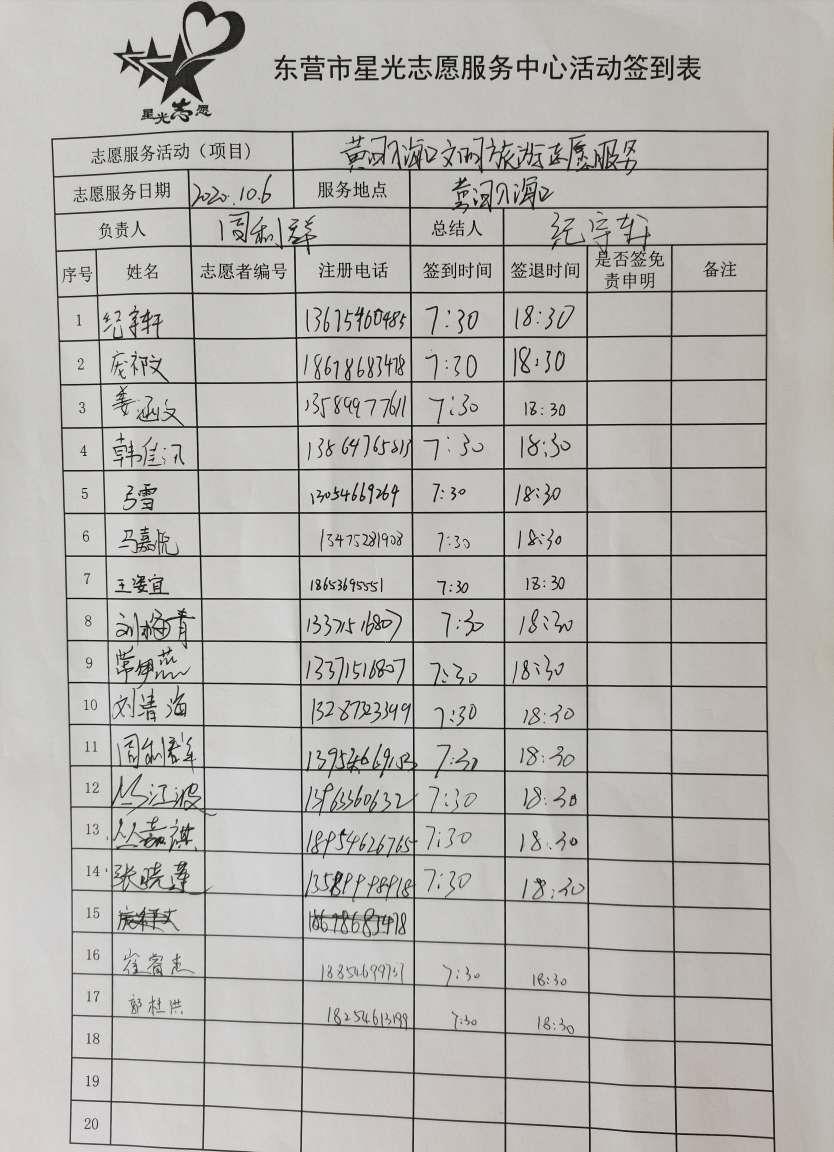 星光志愿
东营市星光志愿服务中心活动签到表
志愿服务活动（项目） 黄河入海口文明旅游志愿服务
志愿服务日期 2020.10.6 服务地点 黄河入海口
负责人 周利群 总结人 纪宇轩
序号 姓名 志愿者编号 注册电话 签到时间 签退时间 是否签免责申明 备注
1 纪宇轩 13675460485 7:30 18:30
2 庞祁文 18678683478 7:30 18:30
3 姜涵文 13589977611 7:30 18:30
4 韩佳汛 7:30 18:30
5 弓雪 13054669264 7:30 18:30
6 马嘉悦 13475281908 7:30 18:30
7 王姿宜 18653695551 7:30 18:30
8 刘梅青 13371516807 7:30 18:30
9 常伊燕 13371516807 7:30 18:30
10 刘清海 13287323399 7:30 18:30
11 周利群 7:30 18:30
12 丛江波 7:30 18:30
13 丛嘉祺 18954626765 7:30 18:30
14 张晓莲 13589998918 7:30 18:30
15 18678683478
16 崔宾杰 18854699737 7:30 18:30
17 郭桂洪 18254613199 7:30 18:30
18
19
20